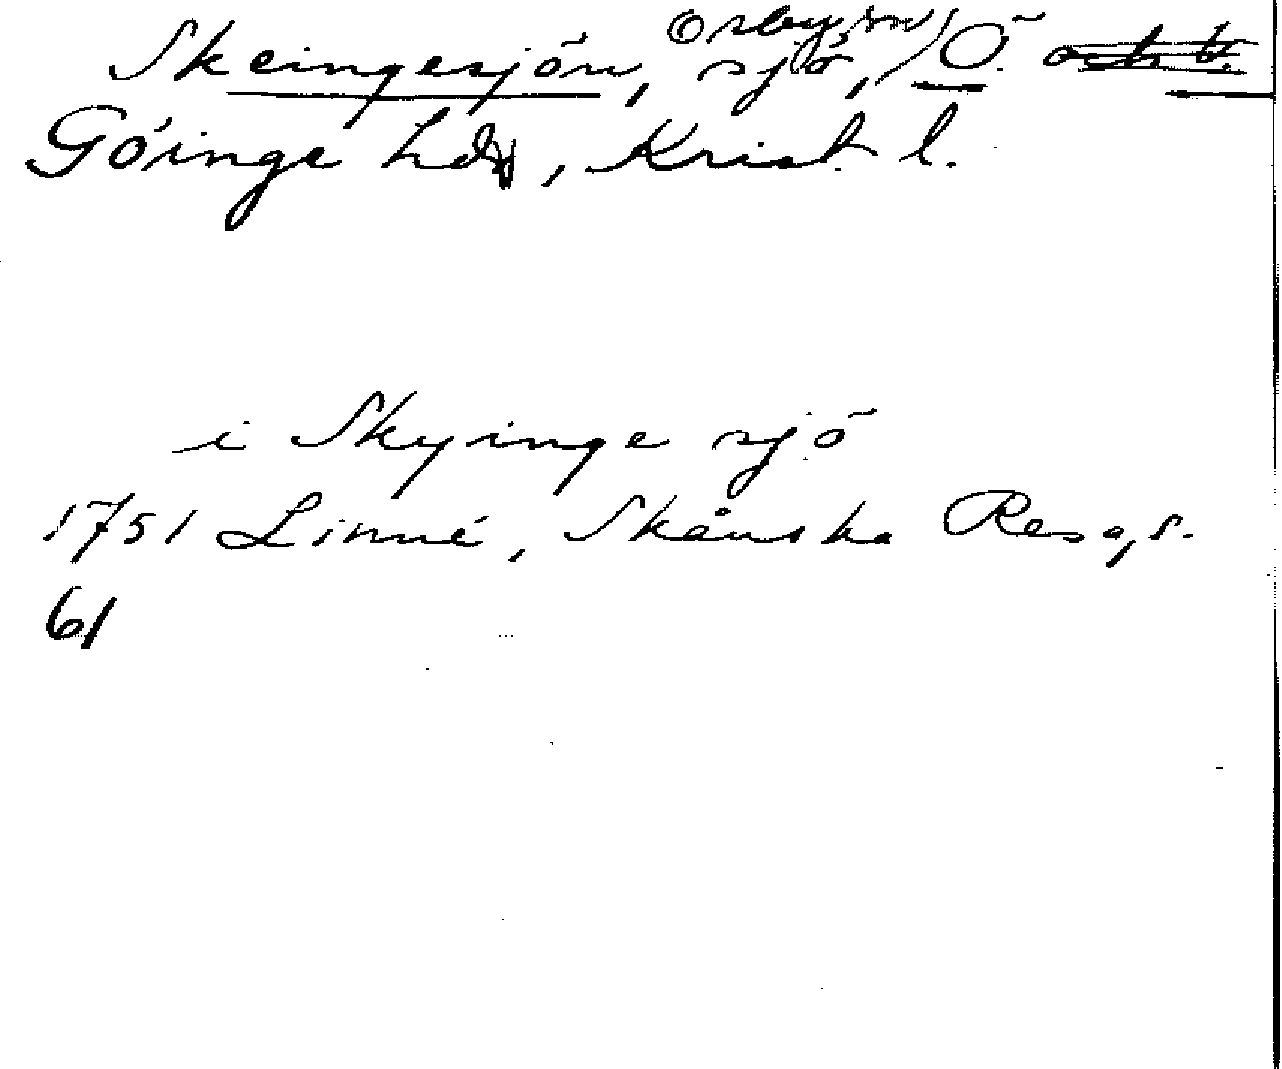 Skeingesjön, sjö, Osby sn, Ö. och V.
Göinge hd, Krist. l.
i Skyinge sjö
1751 Linné, Skånska Resa, s.
61